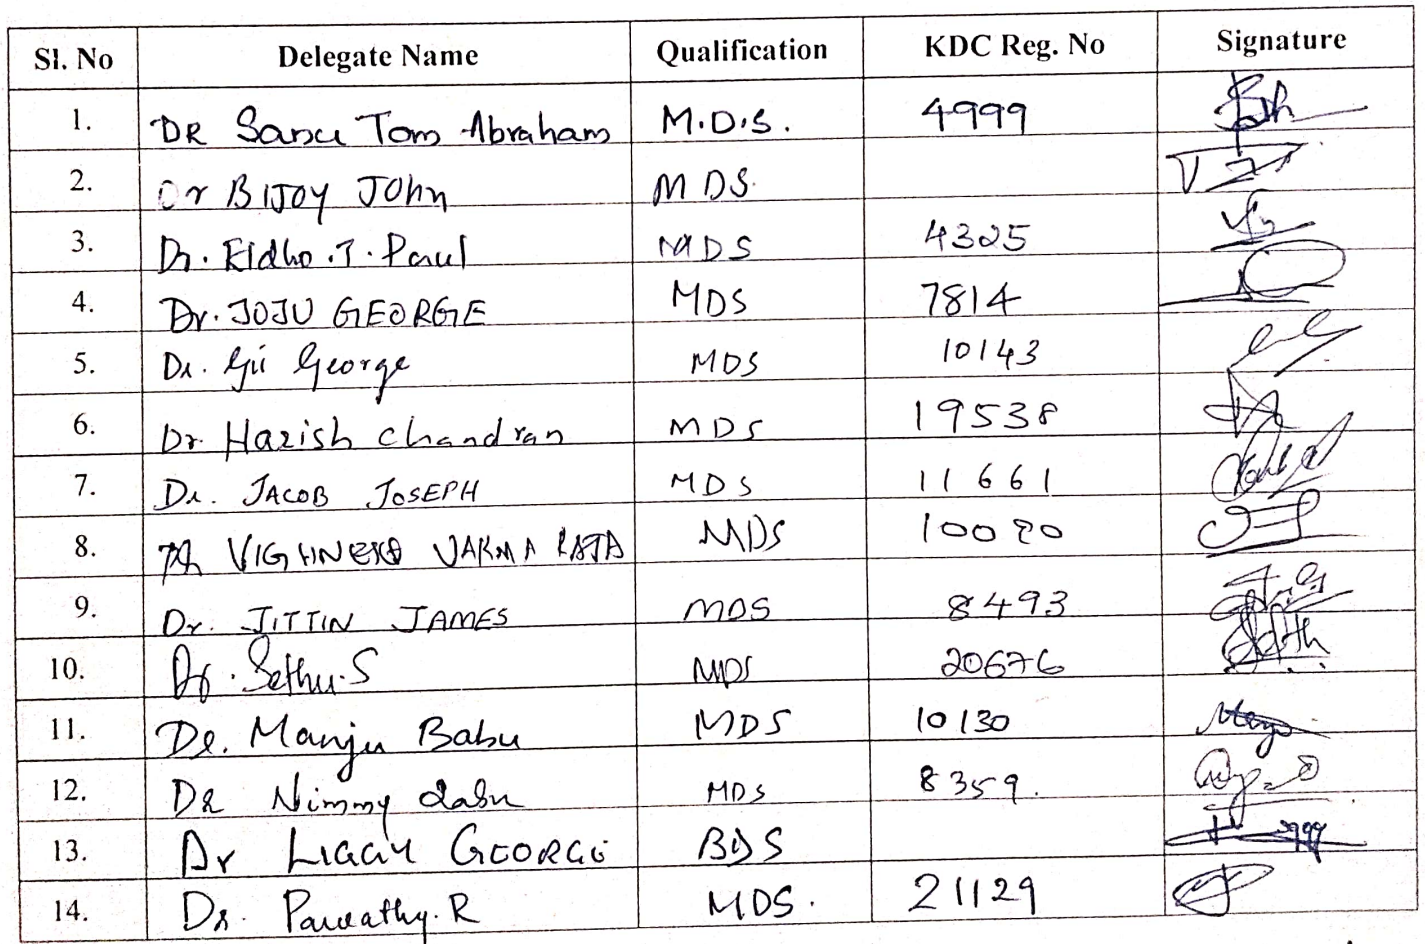 Sl. No Delegate Name Qualification KDC Reg. No Signature
1. DR Sanu Tom Abraham M.D.S. 4999
2. Dr BIJOY JOhn MDS.
3. Dr. Eldho .T. Paul MDS 4325
4. Dr. JOJU GEORGE MDS 7814
5. Dr. George MDS 10143
6. Dr. Harish chandran MDS 19538
7. Dr. JACOB JOSEPH MDS 11661
8. VARMA RAJA MDS
9. Dr. JITTIN JAMES MDS 8493
10. Dr. Sethu.S MDS 20676
11. Dr. Manju Babu MDS 10130
12. DR Nimmy MDS 8359.
13. Dr GEORGE BDS
14. Dr. Parvathy. R MDS. 21129